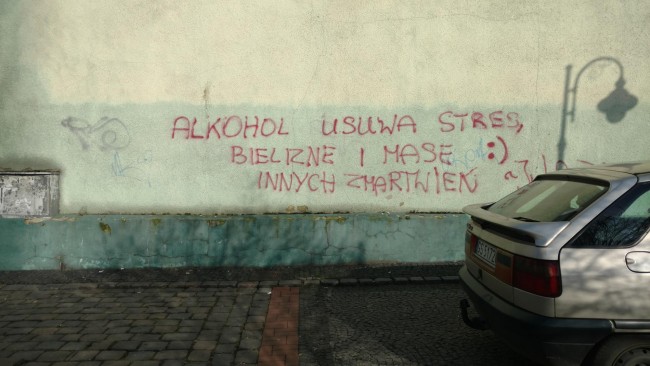 ALKOHOL USUWA STRES,
BIELIZNE I MASE :)
INNYCH ZMARTWIEŃ